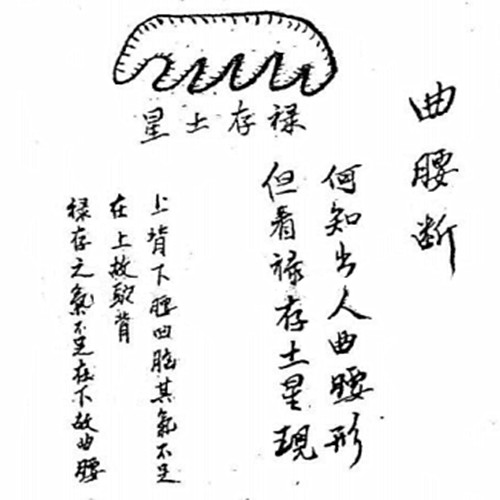 曲腰断
何知出人曲腰形
但看禄存土星現
禄存土星
上背下腰脑其氣不足
在上故駝背
禄存之氣不足在下故曲腰